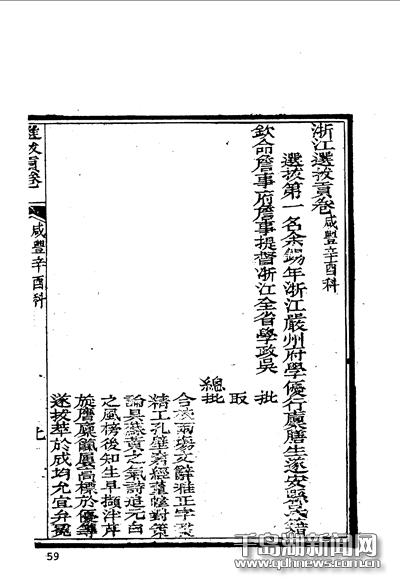 浙江選拔貢卷 咸豐辛酉科
選拔第一名余錫年浙江嚴州府學優行廩膳生遂安縣民籍
欽命詹事府詹事提督浙江全省學政吳
批
取
總批
合校兩場文辭雅正字
精工孔壁
論具 黃之氣詩追元白
之風榜後知生早擷泮芹
旋膺廩餼屢高標於優等
遂拔萃於成均允宜弁冕
選拔貢卷
咸豐辛酉科
59
千岛湖新闻网